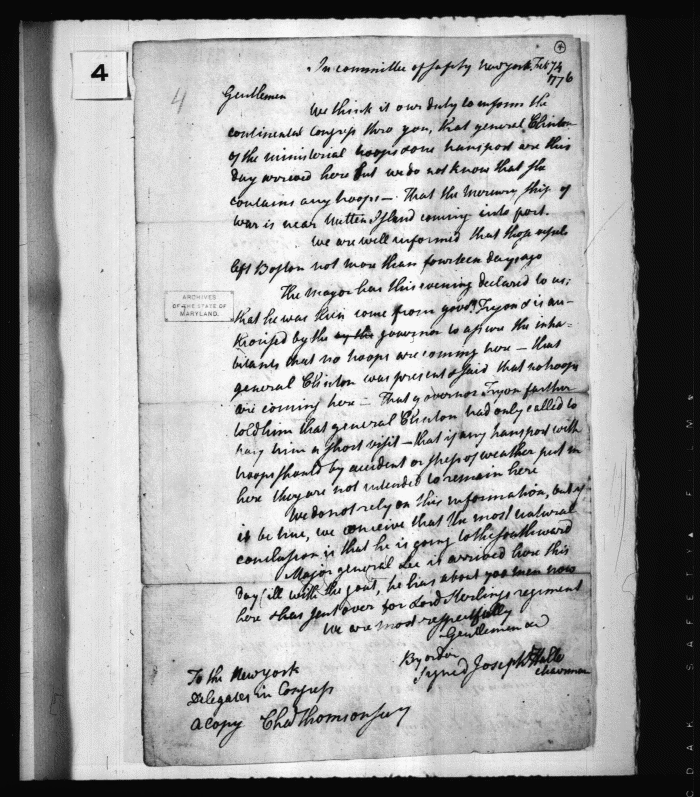 4
4
4
In committee of safety New york Feb 4
1776
Gentlemen
We think it our duty to inform the
continental Congress thro you, that general Clinton
of the ministerial troops & one transport are this
day arrived here but we do not know that she
contains any troops — That the Mercury ship of
war is near Nutten Island coming into port.
We are well informed that those vessels
left Boston not more than fourteen days ago
The Mayor has this evening declared to us;
that he was then come from govr. Tryon & is au-
thorised by the governor to assure the inha=
bitants that no troops are coming here — that
general Clinton was present & said that no troops
are coming here — That governor Tryon farther
told him that general Clinton had only called to
pay him a short visit — that if any transport with
troops should by accident or stress of weather put in
here they are not intended to remain here
We do not rely on this information, but if
it be true, we conceive that the most natural
conclusion is that he is going to the southward
Major general Lee is arrived here this
day (ill with the gout, he has about men now
here & has sent over for Lord Sterlings regiment
We are most respectfully
Gentlemen &c
By order
Signed Joseph Halle
chairman
To the New york
Delegates in Congress
a copy Cha Thomson secy
ARCHIVES
OF THE STATE OF
MARYLAND.
KODAK SAFETY FILM